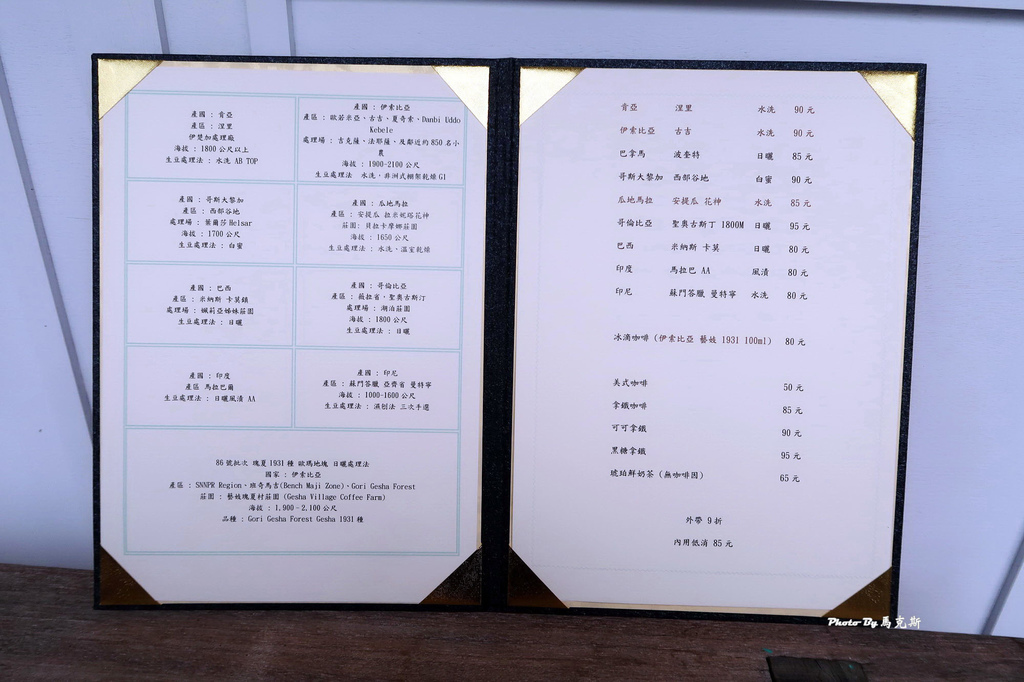 產國 : 肯亞
產區 : 涅里
伊楚加處理廠
海拔 : 1800公尺以上
生豆處理法 : 水洗 AB TOP
產國 : 伊索比亞
產區 : 歐若米亞、古吉、夏奇索、Danbi Uddo
Kebele
處理場 : 吉克薩,法耶薩,及鄰近約850名小
農
海拔 : 1900-2100公尺
生豆處理法 水洗,非洲式棚架乾燥G1
產國 : 哥斯大黎加
產區 : 西部谷地
處理場 : 葉爾莎Helsar
海拔 : 1700公尺
生豆處理法 : 白蜜
產國 : 瓜地馬拉
產區 : 安提瓜 拉米妮塔花神
莊園: 貝拉卡摩娜莊園
海拔 : 1650公尺
生豆處理法 : 水洗,溫室乾燥
產國 : 巴西
產區 : 米納斯 卡莫鎮
處理場 : 姵莉亞姊妹莊園
生豆處理法 : 日曬
產國 : 哥倫比亞
產區 : 薇拉省,聖奧古斯汀
處理場 : 湖泊莊園
海拔 : 1800公尺
生豆處理法 : 日曬
產國 : 印度
產區 馬拉巴爾
生豆處理法 : 日曬風漬 AA
產國 : 印尼
產區 : 蘇門答臘 亞齊省 曼特寧
海拔 : 1000-1600公尺
生豆處理法 : 濕刨法 三次手選
86號批次 瑰夏1931種 歐瑪地塊 日曬處理法
國家 : 伊索比亞
產區 : SNNPR Region、班奇馬吉(Bench Maji Zone)、Gori Gesha Forest
莊園 : 藝妓瑰夏村莊園 (Gesha Village Coffee Farm)
海拔 : 1,900-2,100公尺
品種 : Gori Gesha Forest Gesha 1931種
肯亞 涅里 水洗 90元
伊索比亞 古吉 水洗 90元
巴拿馬 波奎特 日曬 85元
哥斯大黎加 西部谷地 白蜜 90元
瓜地馬拉 安提瓜 花神 水洗 85元
哥倫比亞 聖奧古斯丁 1800M 日曬 95元
巴西 米納斯 卡莫 日曬 80元
印度 馬拉巴 AA 風漬 80元
印尼 蘇門答臘 曼特寧 水洗 80元
冰滴咖啡(伊索比亞 藝妓 1931 100ml) 80元
美式咖啡 50元
拿鐵咖啡 85元
可可拿鐵 90元
黑糖拿鐵 95元
琥珀鮮奶茶(無咖啡因) 65元
外帶 9折
內用低消 85元
Photo By 馬克斯